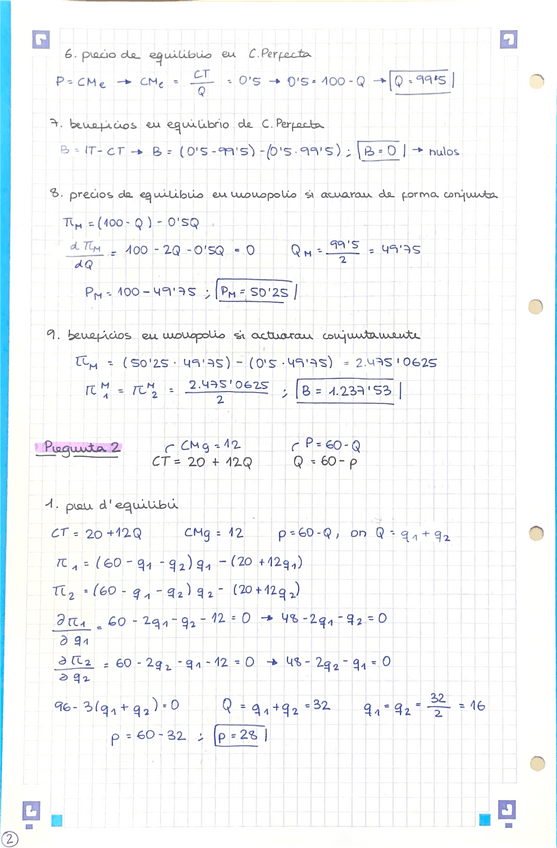 6. precio de equilibrio en C.Perfecta
P = CMe → CMe = CT/Q = 0'5 → 0'5 = 100 - Q → Q = 99'5
7. beneficios en equilibrio de C. Perfecta
B = IT - CT → B = (0'5 - 99'5) - (0'5 · 99'5) ; B = 0 → nulos
8. precios de equilibrio en monopolio si acuaran de forma conjunta
πM = (100 - Q) - 0'5Q
dπM/dQ = 100 - 2Q - 0'5Q = 0 QM = 99'5/2 = 49'75
PM = 100 - 49'75 ; PM = 50'25
9. beneficios en monopolio si actuaran conjuntamente
πM = (50'25 · 49'75) - (0'5 · 49'75) = 2.475'0625
π1^M = π2^M = 2.475'0625/2 ; B = 1.237'53
Pregunta 2 CMg = 12 P = 60 - Q
CT = 20 + 12Q Q = 60 - p
1. preu d'equilibri
CT = 20 + 12Q CMg = 12 p = 60 - Q, on Q = q1 + q2
π1 = (60 - q1 - q2) q1 - (20 + 12q1)
π2 = (60 - q1 - q2) q2 - (20 + 12q2)
∂π1/∂q1 = 60 - 2q1 - q2 - 12 = 0 → 48 - 2q1 - q2 = 0
∂π2/∂q2 = 60 - 2q2 - q1 - 12 = 0 → 48 - 2q2 - q1 = 0
96 - 3(q1 + q2) = 0 Q = q1 + q2 = 32 q1 = q2 = 32/2 = 16
p = 60 - 32 ; p = 28
2